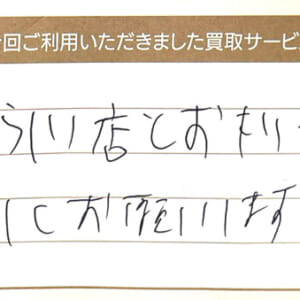 今回ご利用いただきました買取サービ
らしい店とおもい
しくお願いします